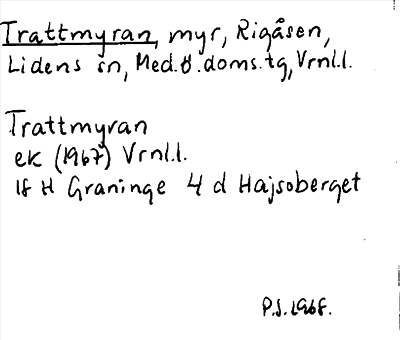 Trattmyran, myr, Rigåsen,
Lidens sn, Med.ö.doms.tg, Vrnl.l.
Trattmyran
ek (1967) Vrnl.l.
18 H Graninge 4 d Hajsoberget
P.S. 1968.